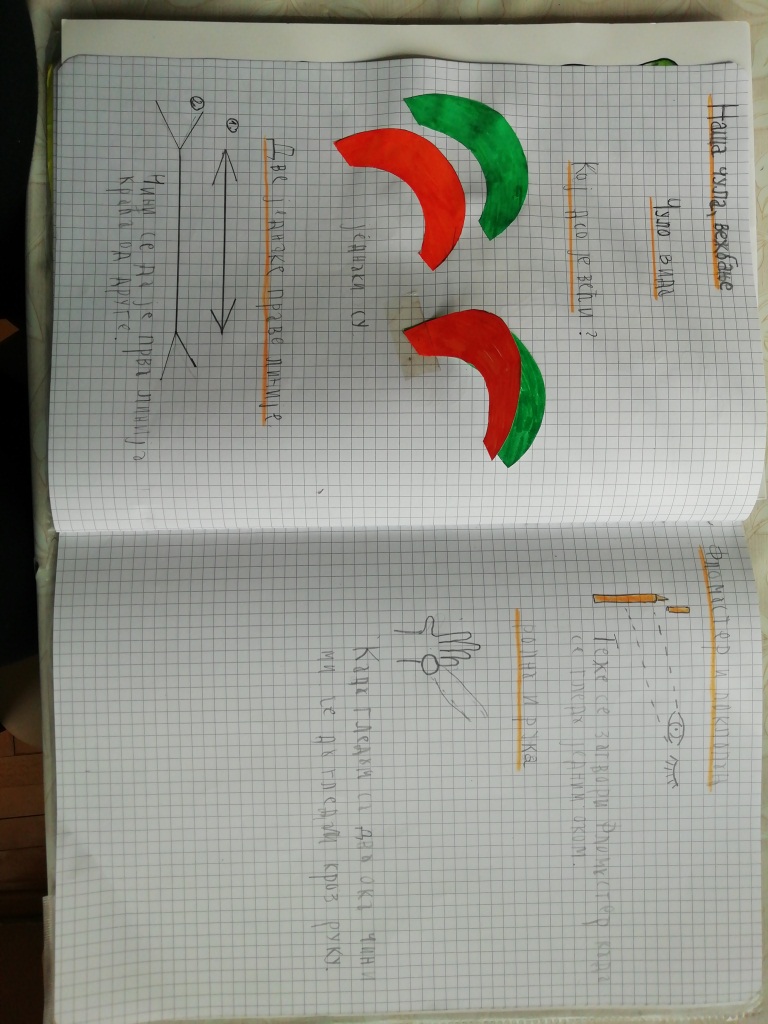 Наша чула, вежбање
Чуло вида
Који део је већи?
једнаки су
Две једнаке праве линије
①
②
Чини се да је прва линија
краћа од друге.
Фломастер и поклопац
Теже се затвори фломастер када
се гледа једним оком.
ролна и рука
Када гледам са два ока чини
ми се да гледам кроз руку.